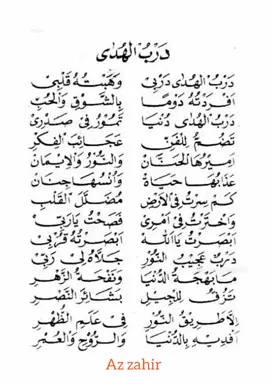 دَرْبُ الْهُدٰى
دَرْبُ الْهُدٰى دَرْبِيْ وَهَبْتُهُ قَلْبِيْ
اَفْرَدْتُهُ دَوْمًا بِالشَّوْقِ وَالْحُبِّ
دَرْبُ الْهُدٰى دُنْيَا تَمُوْرُ فِيْ صَدْرِيْ
تَضُمُّ لِلْفَنِّ عَجَائِبَ الْفِكْرِ
اَمِيْرُهَا الْحَنَّانْ وَالنُّوْرُ وَالْاِيْمَانْ
عَذَابُهَا حَيَاةْ وَاُنْسُهَا جِنَانْ
كَمْ سِرْتُ فِى الْاَرْضِ مُضَلَّلَ الْقَلْبِ
وَاخْتَرْتُ فِيْ اَمْرِيْ فَصَحْتُ يَارَبِّيْ
اَبْصَرْتُ يَا اَللهُ اَبْصَرْتُهُ قُرْبِيْ
دَرْبٌ عَجِيْبُ النُّوْرِ جَلَّاهُ لِيْ رَبِّيْ
مَا بَهْجَةُ الدُّنْيَا وَنَفْحَةُ الزَّهْرِ
تَزُفُّ لِلْجِيْلِ بَشَائِرَ النَّصْرِ
اِلَّا طَرِيْقُ النُّوْرِ فِيْ عَالَمِ الطُّهْرِ
اَفْدِيْهِ بِالدُّنْيَا وَالرُّوْحِ وَالْعُمْرِ
Az zahir